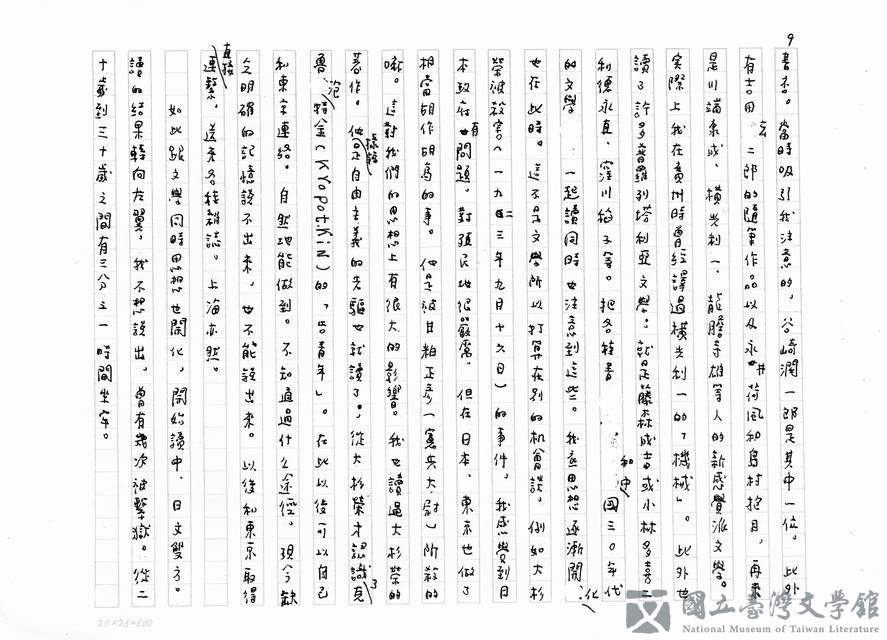 9
書店。當時吸引我注意的，谷崎潤一郎是其中一位。此外
有吉田玄二郎的隨筆作品以及永井荷風和島村抱月，再來
是川端康成、橫光利一、龍膽寺雄等人的新感覺派文學。
實際上我在廣州時曾經譯過橫光利一的「機械」。此外也
讀了許多普羅列塔利亞文學。就是藤森成吉或小林多喜二
和德永直、窪川稻子等。把各種書和中國三〇年代
的文學 一起讀同時也注意到這些。我底思想逐漸開化
也在此時。這不是文學所以打算在別的机會談。例如大杉
榮被殺害（一九二三年九月十六日）的事件。我感覺到日
本政府也有問題，對殖民地很嚴厲。但在日本、東京也做了
相當胡作胡為的事。他是被甘粕正彥（憲兵大尉）所殺的
喲。這對我們的思想上有很大的影響。我也讀過大杉榮的
著作。他是自由主義的先驅也就讀了。從大杉榮才認識克
魯泡特金（KYopotKin）的「告青年」。在此以後可以自己
和東京連絡。自然地能做到。不知道通過什么途徑。現今缺
乏明確的記憶說不出來，也不能說出來。以後和東京取得
直接連繫，送來各種雜誌。上海亦然。
如此跟文學同時思想也開化，開始讀中、日文雙方。
讀的結果轉向左翼，我不想說出，曾有幾次被繫獄。從二
十歲到三十歲之間有三分之一時間坐牢。
20×25=500
國立臺灣文學館
National Museum of Taiwan Literature